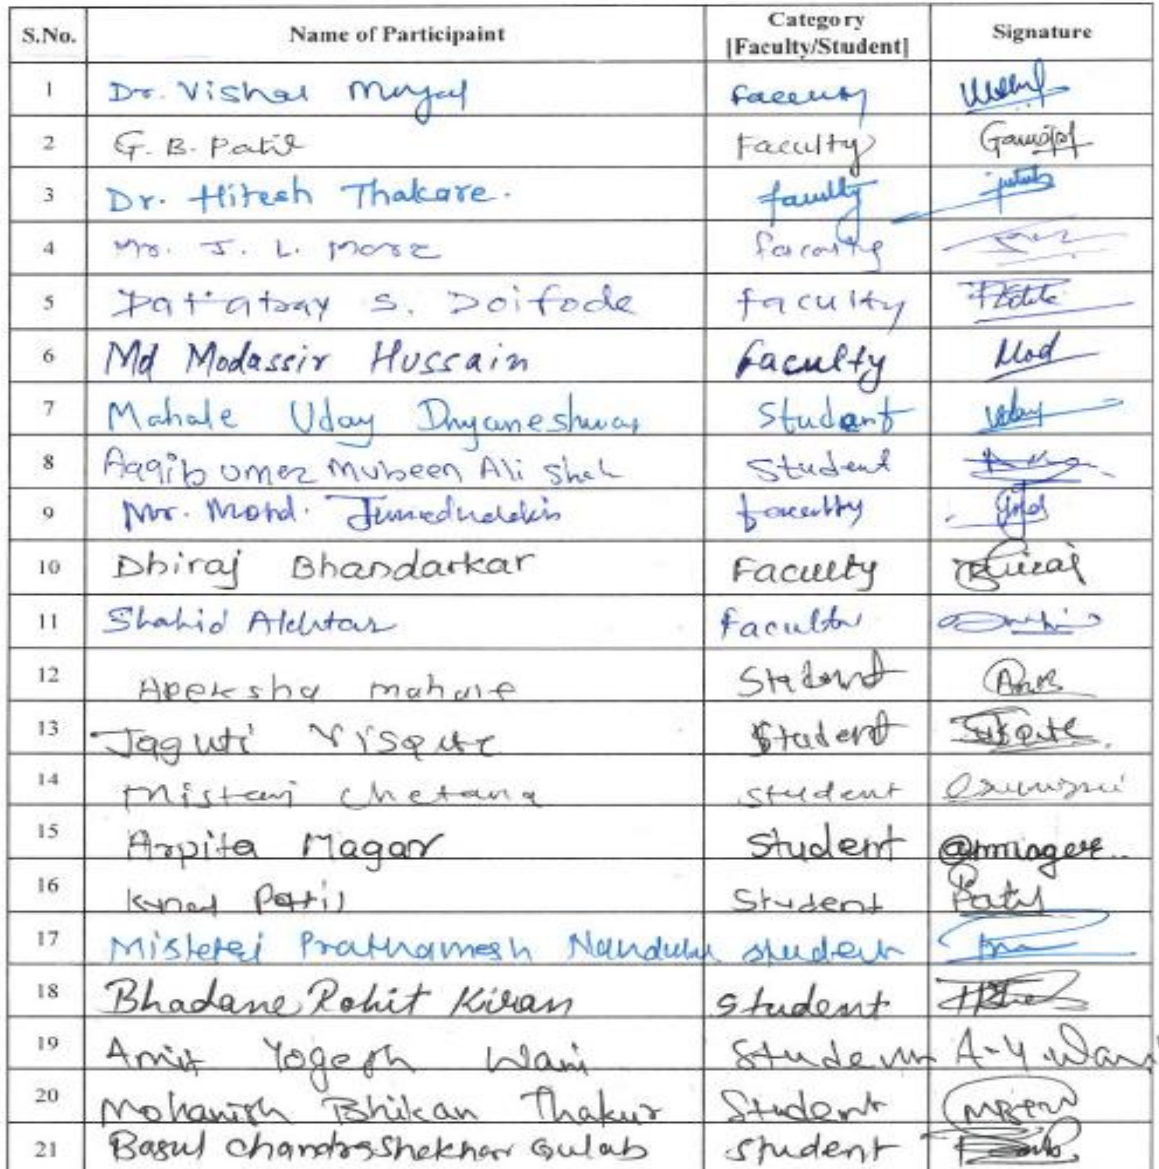 S.No. Name of Participaint Category [Faculty/Student] Signature
1 Dr. Vishal Muyal Faculty
2 G. B. Patil Faculty
3 Dr. Hitesh Thakare. faculty
4 Mr. J. L. More faculty
5 Dattatray S. Doifode faculty
6 Md Modassir Hussain faculty Mod
7 Mahale Uday Dnyaneshwar Student Uday
8 Aaqib Umer Mubeen Ali Shah Student
9 Mr. Mohd. faculty
10 Dhiraj Bhandarkar Faculty Dhiraj
11 Shahid Akhtar Faculty
12 Apeksha mahale Student
13 Jaguti Visqute Student
14 Mistari Chetana student
15 Arpita Magar Student
16 Kunal Patil Student Patil
17 Misteri Prathamesh student
18 Bhadane Rohit Kiran Student
19 Amit Yogesh Wani Student A-Y Wani
20 Mohanish Bhikan Thakur Student
21 Basul Chandrashekhar Gulab Student